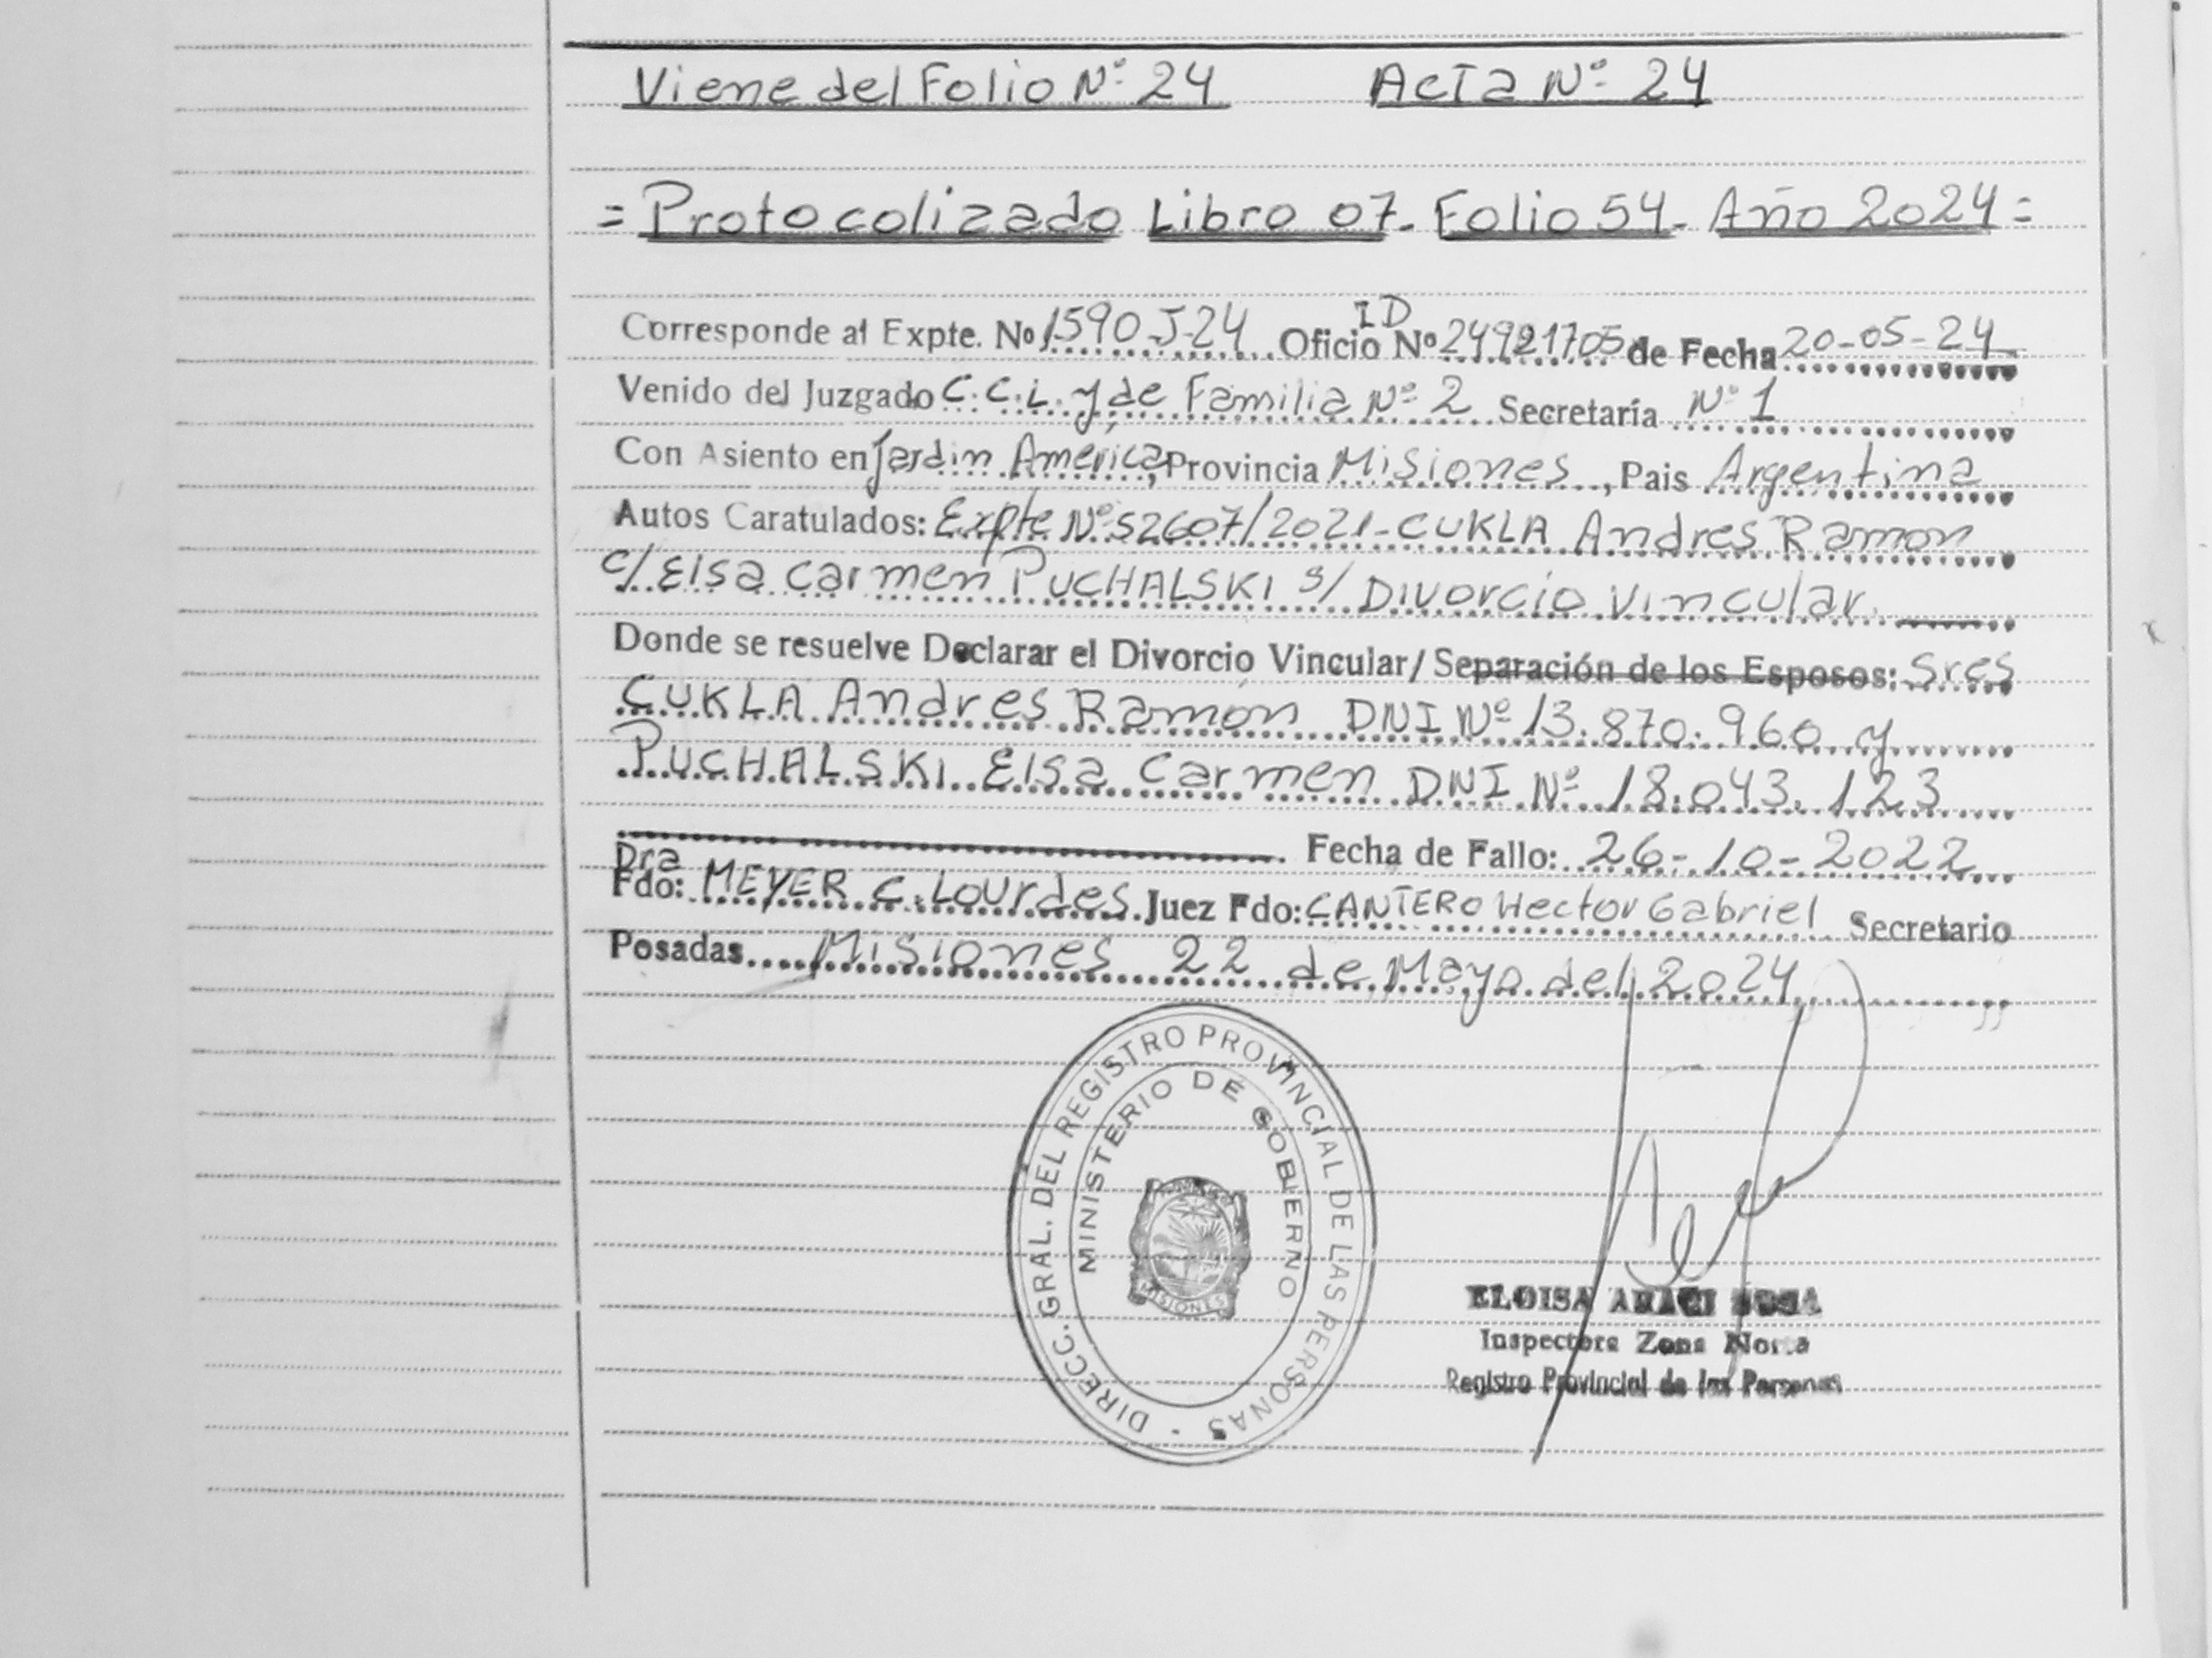 Viene del Folio Nº 24 Acta Nº 24
= Protocolizado Libro 07. Folio 54. Año 2024 =
Corresponde al Expte. Nº 1590-J-24 Oficio ID Nº 24921705 de Fecha 20-05-24
Venido del Juzgado C.C.L. y de Familia Nº 2 Secretaría Nº 1
Con Asiento en Jardin America, Provincia Misiones, Pais Argentina
Autos Caratulados: Expte Nº 52607/2021-CUKLA Andres Ramon
c/ Elsa Carmen PUCHALSKI s/ Divorcio Vincular.
Donde se resuelve Declarar el Divorcio Vincular/ Separación de los Esposos: Sres
CUKLA Andres Ramon DNI Nº 13.870.960 y
PUCHALSKI Elsa Carmen DNI Nº 18.043.123
Fecha de Fallo: 26-10-2022
Dra
Fdo: MEYER C. Lourdes. Juez Fdo: CANTERO Hector Gabriel Secretario
Posadas Misiones 22 de Mayo del 2024
DIRECC. GRAL. DEL REGISTRO PROVINCIAL DE LAS PERSONAS -
MINISTERIO DE GOBIERNO
MISIONES
ELOISA
Inspectora Zona Norte
Registro Provincial de las Personas